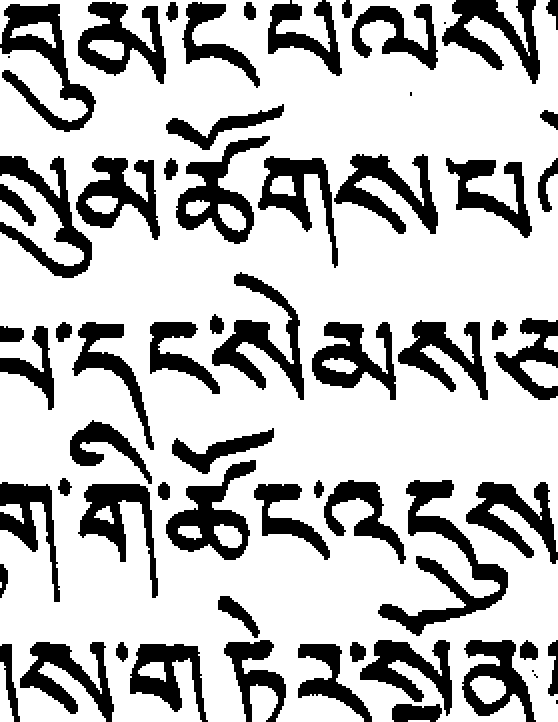 བུམ་ང་པ་ལས
སུམ་ཚོགས་པ
པ་དང་སེམས་ཅ
ག་གི་ཚོང་འདུས
ས་གཏེར་སྔོན་